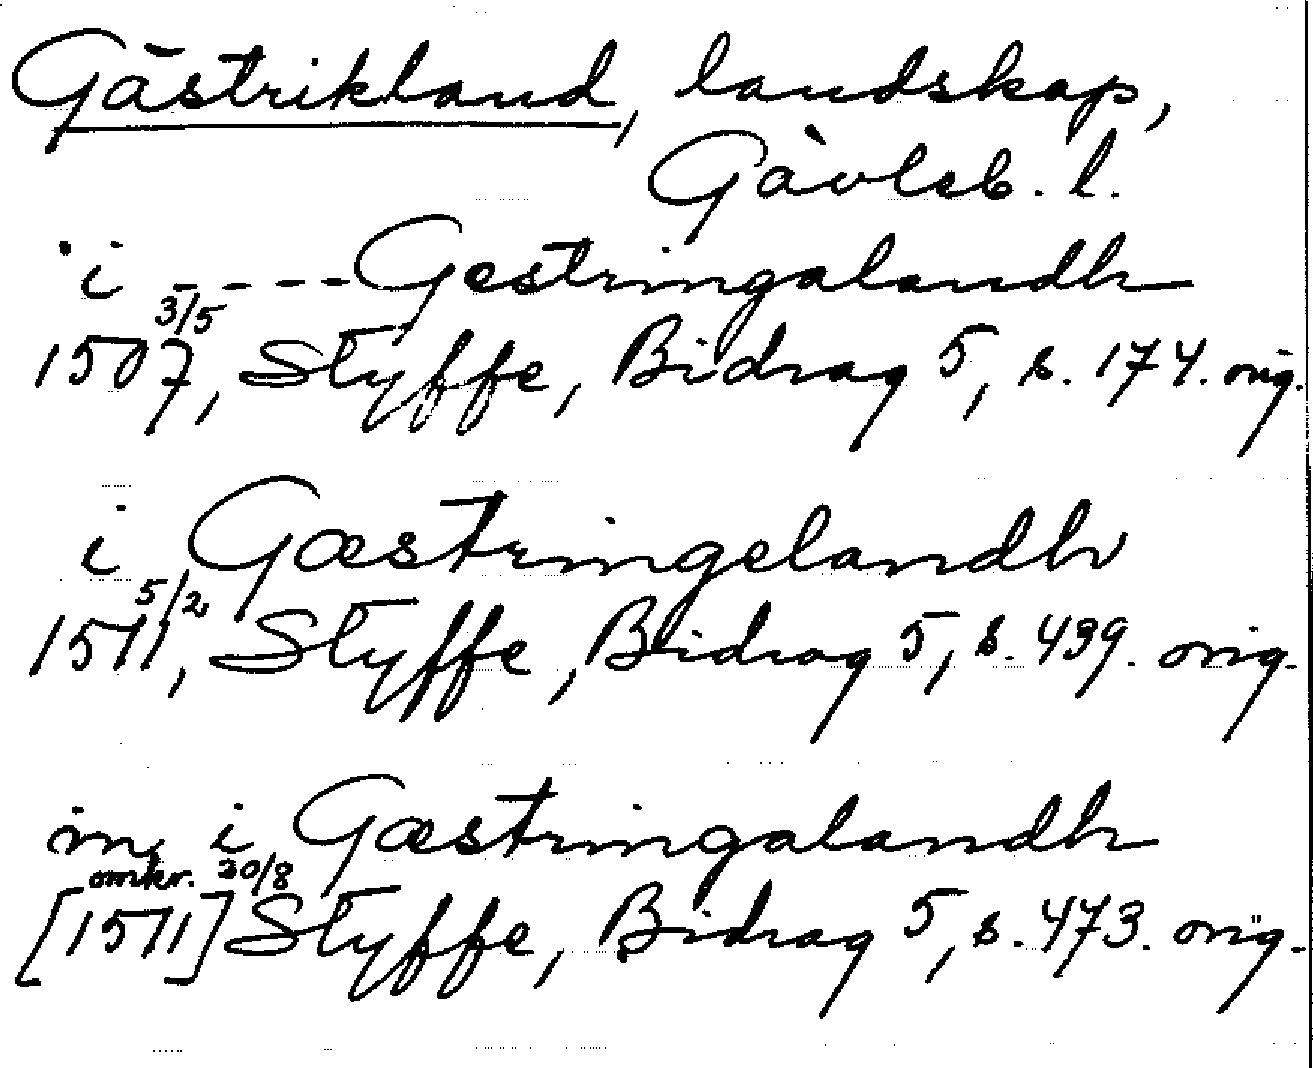 Gästrikland, landskap,
Gävleb. l.
i - - - - Gestringalandh
1507 3/5, Styffe, Bidrag 5, s. 174. orig.
i Gæstringelandh
1511 5/2, Styffe, Bidrag 5, s. 439. orig.
in i Gæstringalandh
[1511] omkr. 20/8 Styffe, Bidrag 5, s. 473. orig.